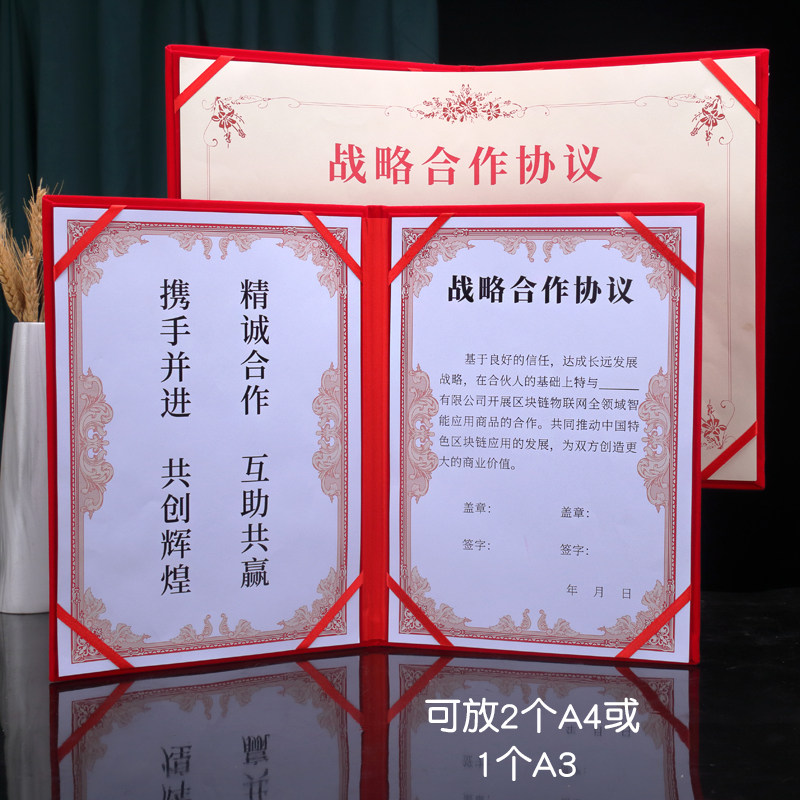 战略合作协议
精诚合作 互助共赢
携手并进 共创辉煌
战略合作协议
基于良好的信任，达成长远发展
战略，在合伙人的基础上特与______
有限公司开展区块链物联网全领域智
能应用商品的合作。共同推动中国特
色区块链应用的发展，为双方创造更
大的商业价值。
盖章： 盖章：
签字： 签字：
年 月 日
可放2个A4或
1个A3